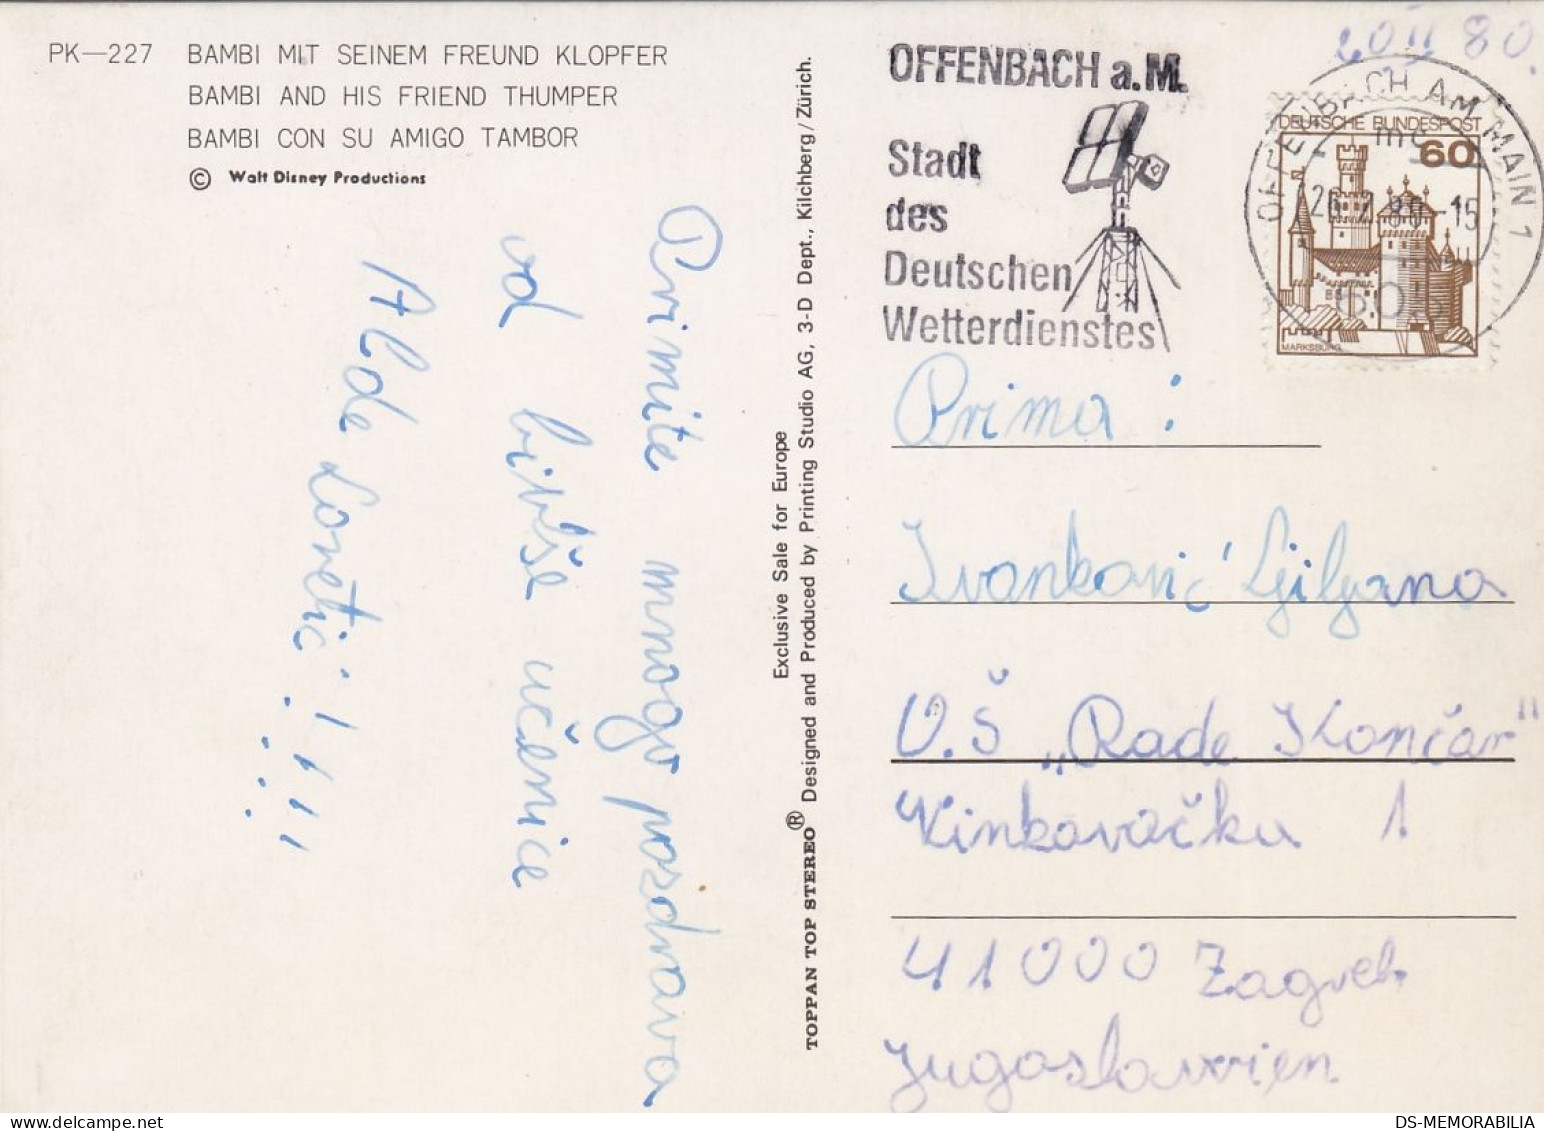 PK—227 BAMBI MIT SEINEM FREUND KLOPFER
BAMBI AND HIS FRIEND THUMPER
BAMBI CON SU AMIGO TAMBOR
© Walt Disney Productions
Primite mnogo pozdrava
od bivše učenice
Alde Lovetić!!!!
Exclusive Sale for Europe
TOPPAN TOP STEREO® Designed and Produced by Printing Studio AG, 3-D Dept., Kilchberg/Zürich.
OFFENBACH a.M.
Stadt
des
Deutschen
Wetterdienstes
80.
OFFENBACH AM MAIN 1
DEUTSCHE BUNDESPOST
60
-15
MARKSBURG
Prima:
Ivanković Ljiljana
O.Š „Rade Končar"
Vinkovačka 1
41000 Zagreb
Jugoslavien
DS-MEMORABILIA